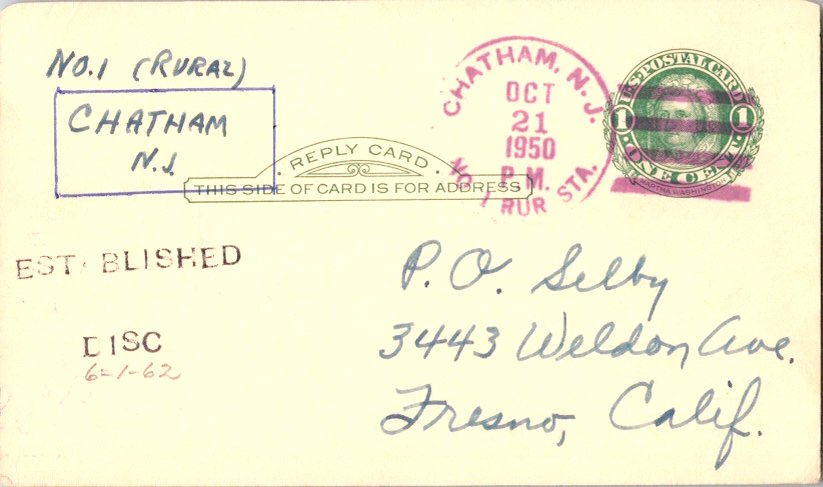 No.1 (RURAL)
CHATHAM
N.J.
REPLY CARD.
THIS SIDE OF CARD IS FOR ADDRESS
CHATHAM, N.J.
OCT
21
1950
P.M.
NO. 1 RUR STA.
U.S. POSTAL CARD
1 1
ONE CENT
MARTHA WASHINGTON
P.O. Selby
3443 Weldon Ave.
Fresno, Calif.
EST BLISHED
DISC
6-1-62